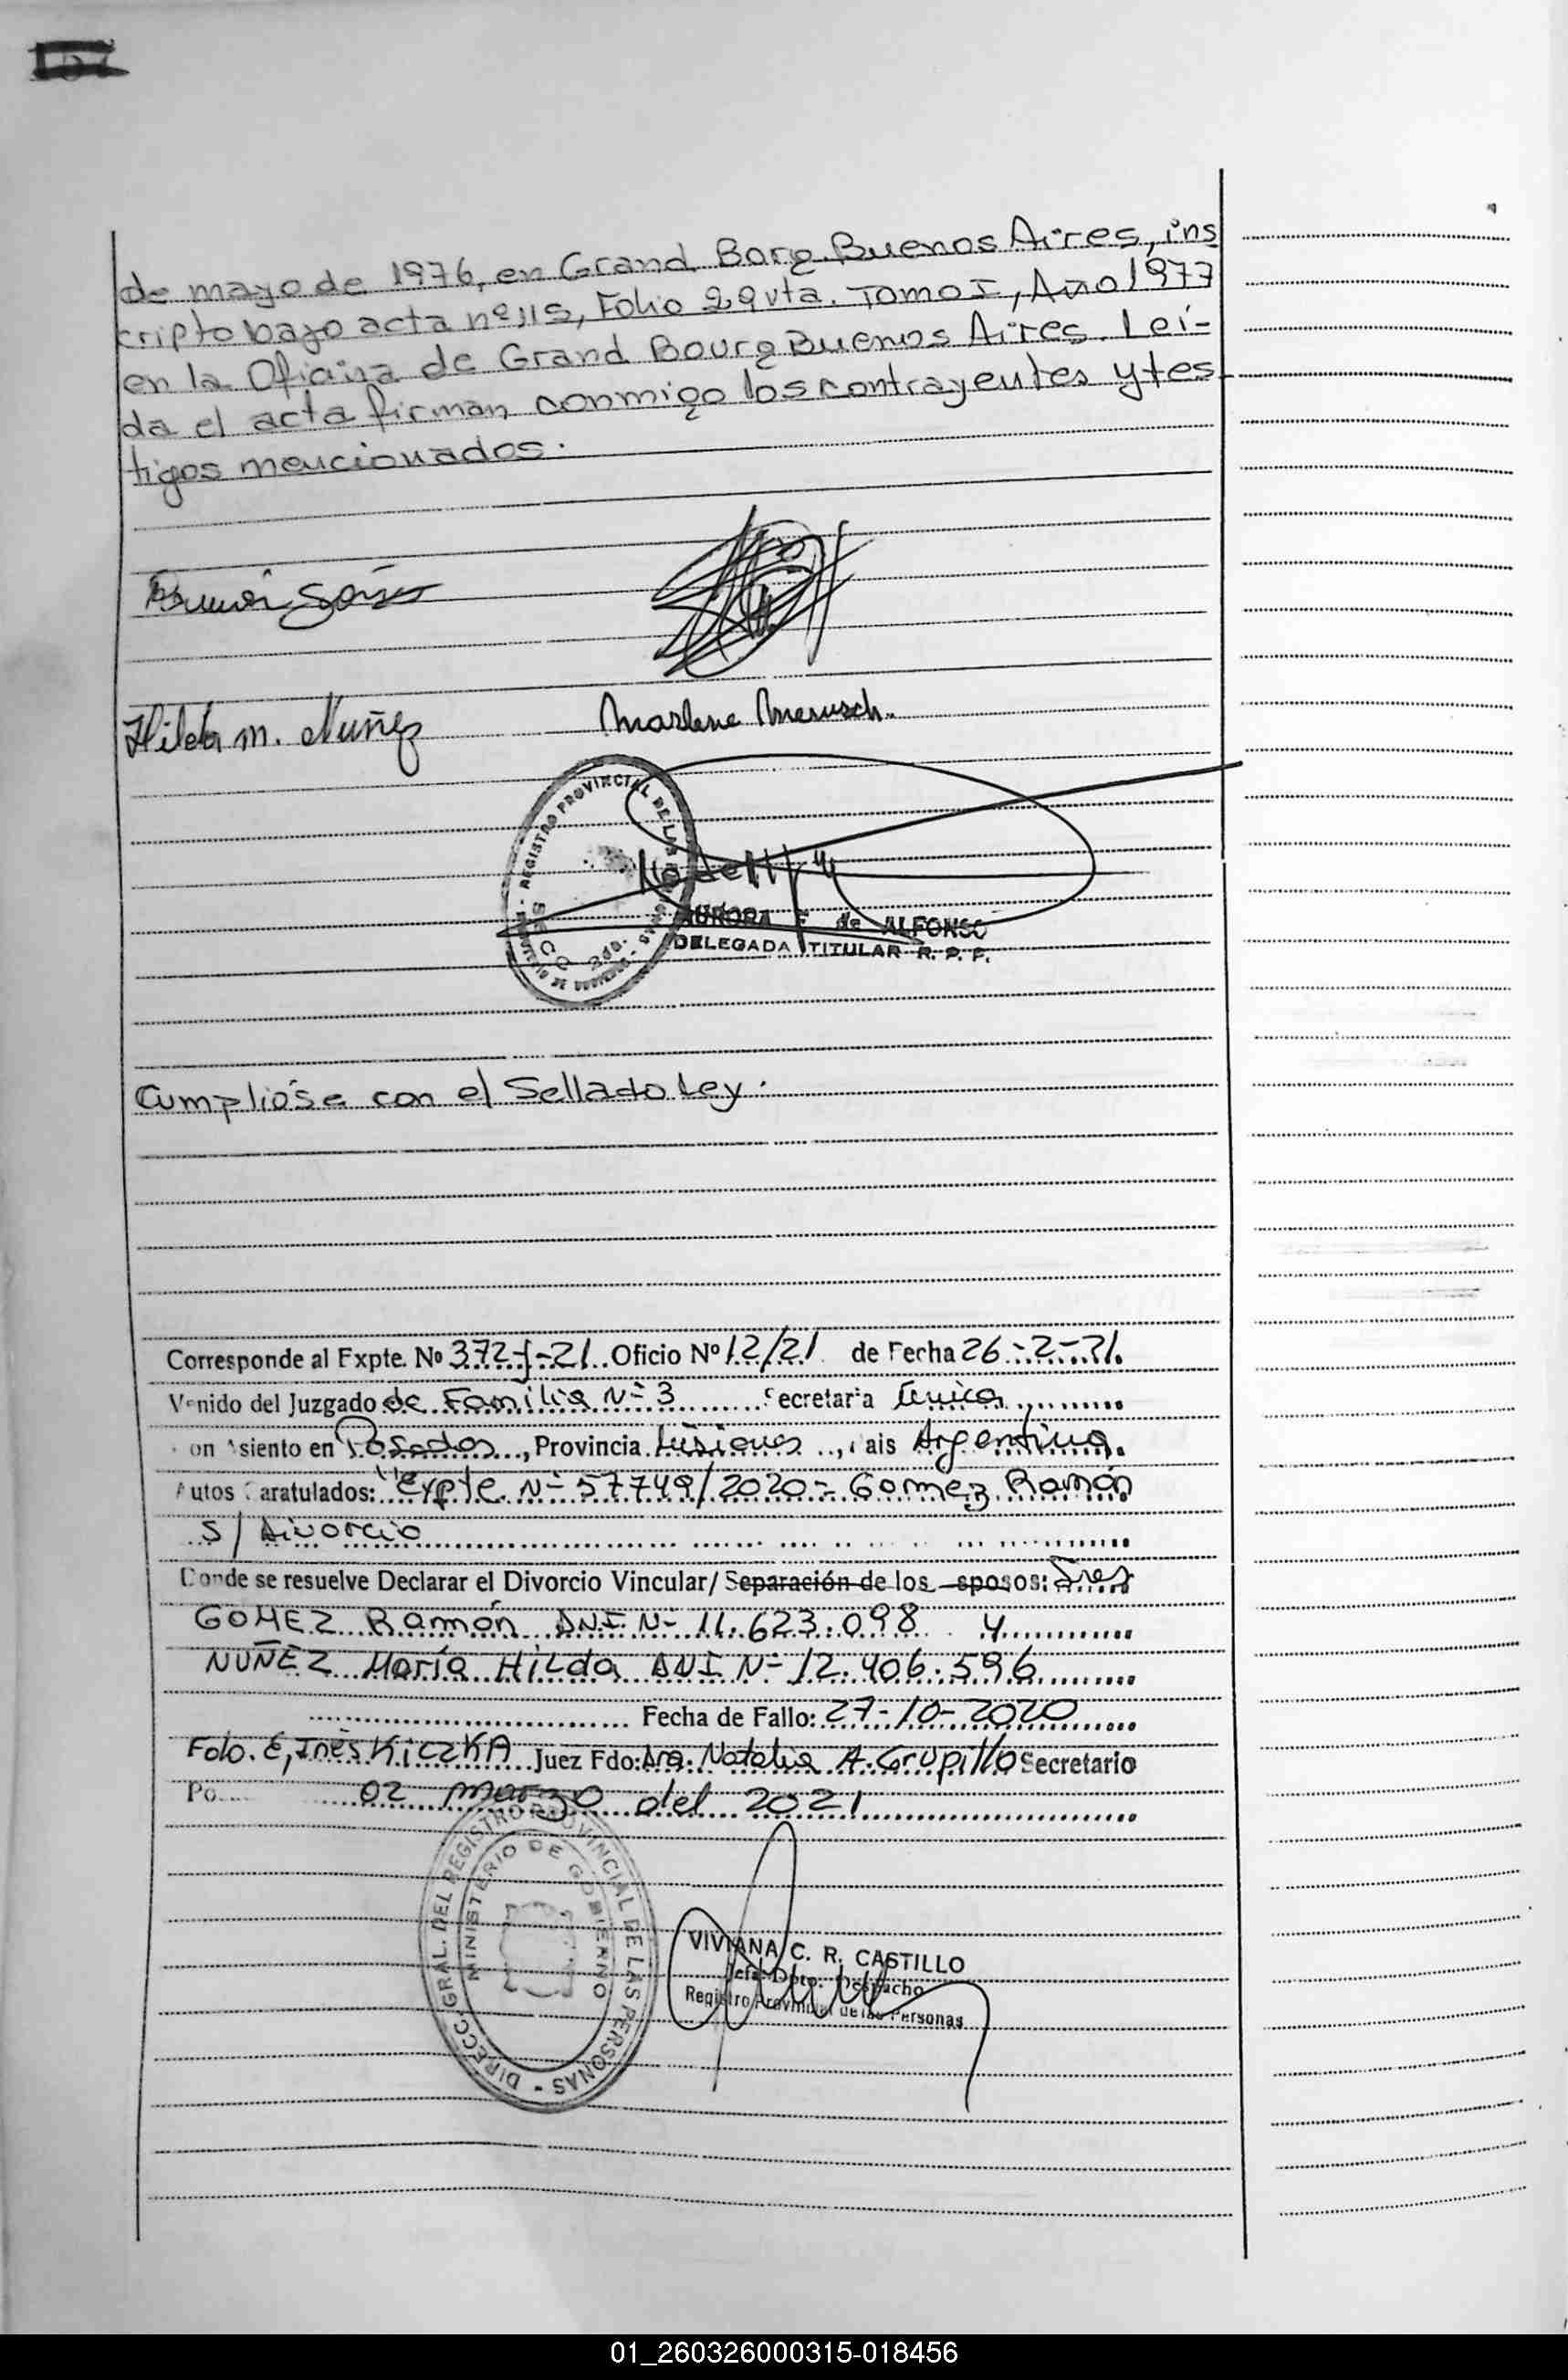 de mayo de 1976, en Grand Borg. Buenos Aires, ins
cripto bajo acta nº 115, Folio 29 vta. Tomo I, Año 1977
en la Oficina de Grand Bourg Buenos Aires. Leí-
da el acta firman conmigo los contrayentes y tes
tigos mencionados.
Hilda M. Nuñez
Marlene
REGISTRO PROVINCIAL DE LAS
AURORA F. de ALFONSO
DELEGADA TITULAR R. P. P.
Cumplióse con el Sellado Ley.
Corresponde al Expte. Nº 372-J-21 Oficio Nº 12/21 de Fecha 26-2-21.
Venido del Juzgado de Familia Nº 3 Secretaria Unica
on Asiento en Posadas, Provincia Misiones, Pais Argentina.
Autos Caratulados: "Expte. Nº 57749/2020 - Gomez Ramón
S/ Divorcio
Donde se resuelve Declarar el Divorcio Vincular/ Separación de los esposos: Sres
GOMEZ Ramón DNI Nº 11.623.098 y
NUÑEZ María Hilda DNI Nº 12.406.596
Fecha de Fallo: 27-10-2020
Fdo. E, Inés KiczKA Juez Fdo: Dra. Natalia A. Grupillo Secretario
Po 02 marzo del 2021
DIRECC. GRAL. DEL REGISTRO PROVINCIAL DE LAS PERSONAS -
MINISTERIO DE GOBIERNO
VIVIANA C. R. CASTILLO
Jefa Dpto. Despacho
Registro Provincial de las Personas
01_260326000315-018456